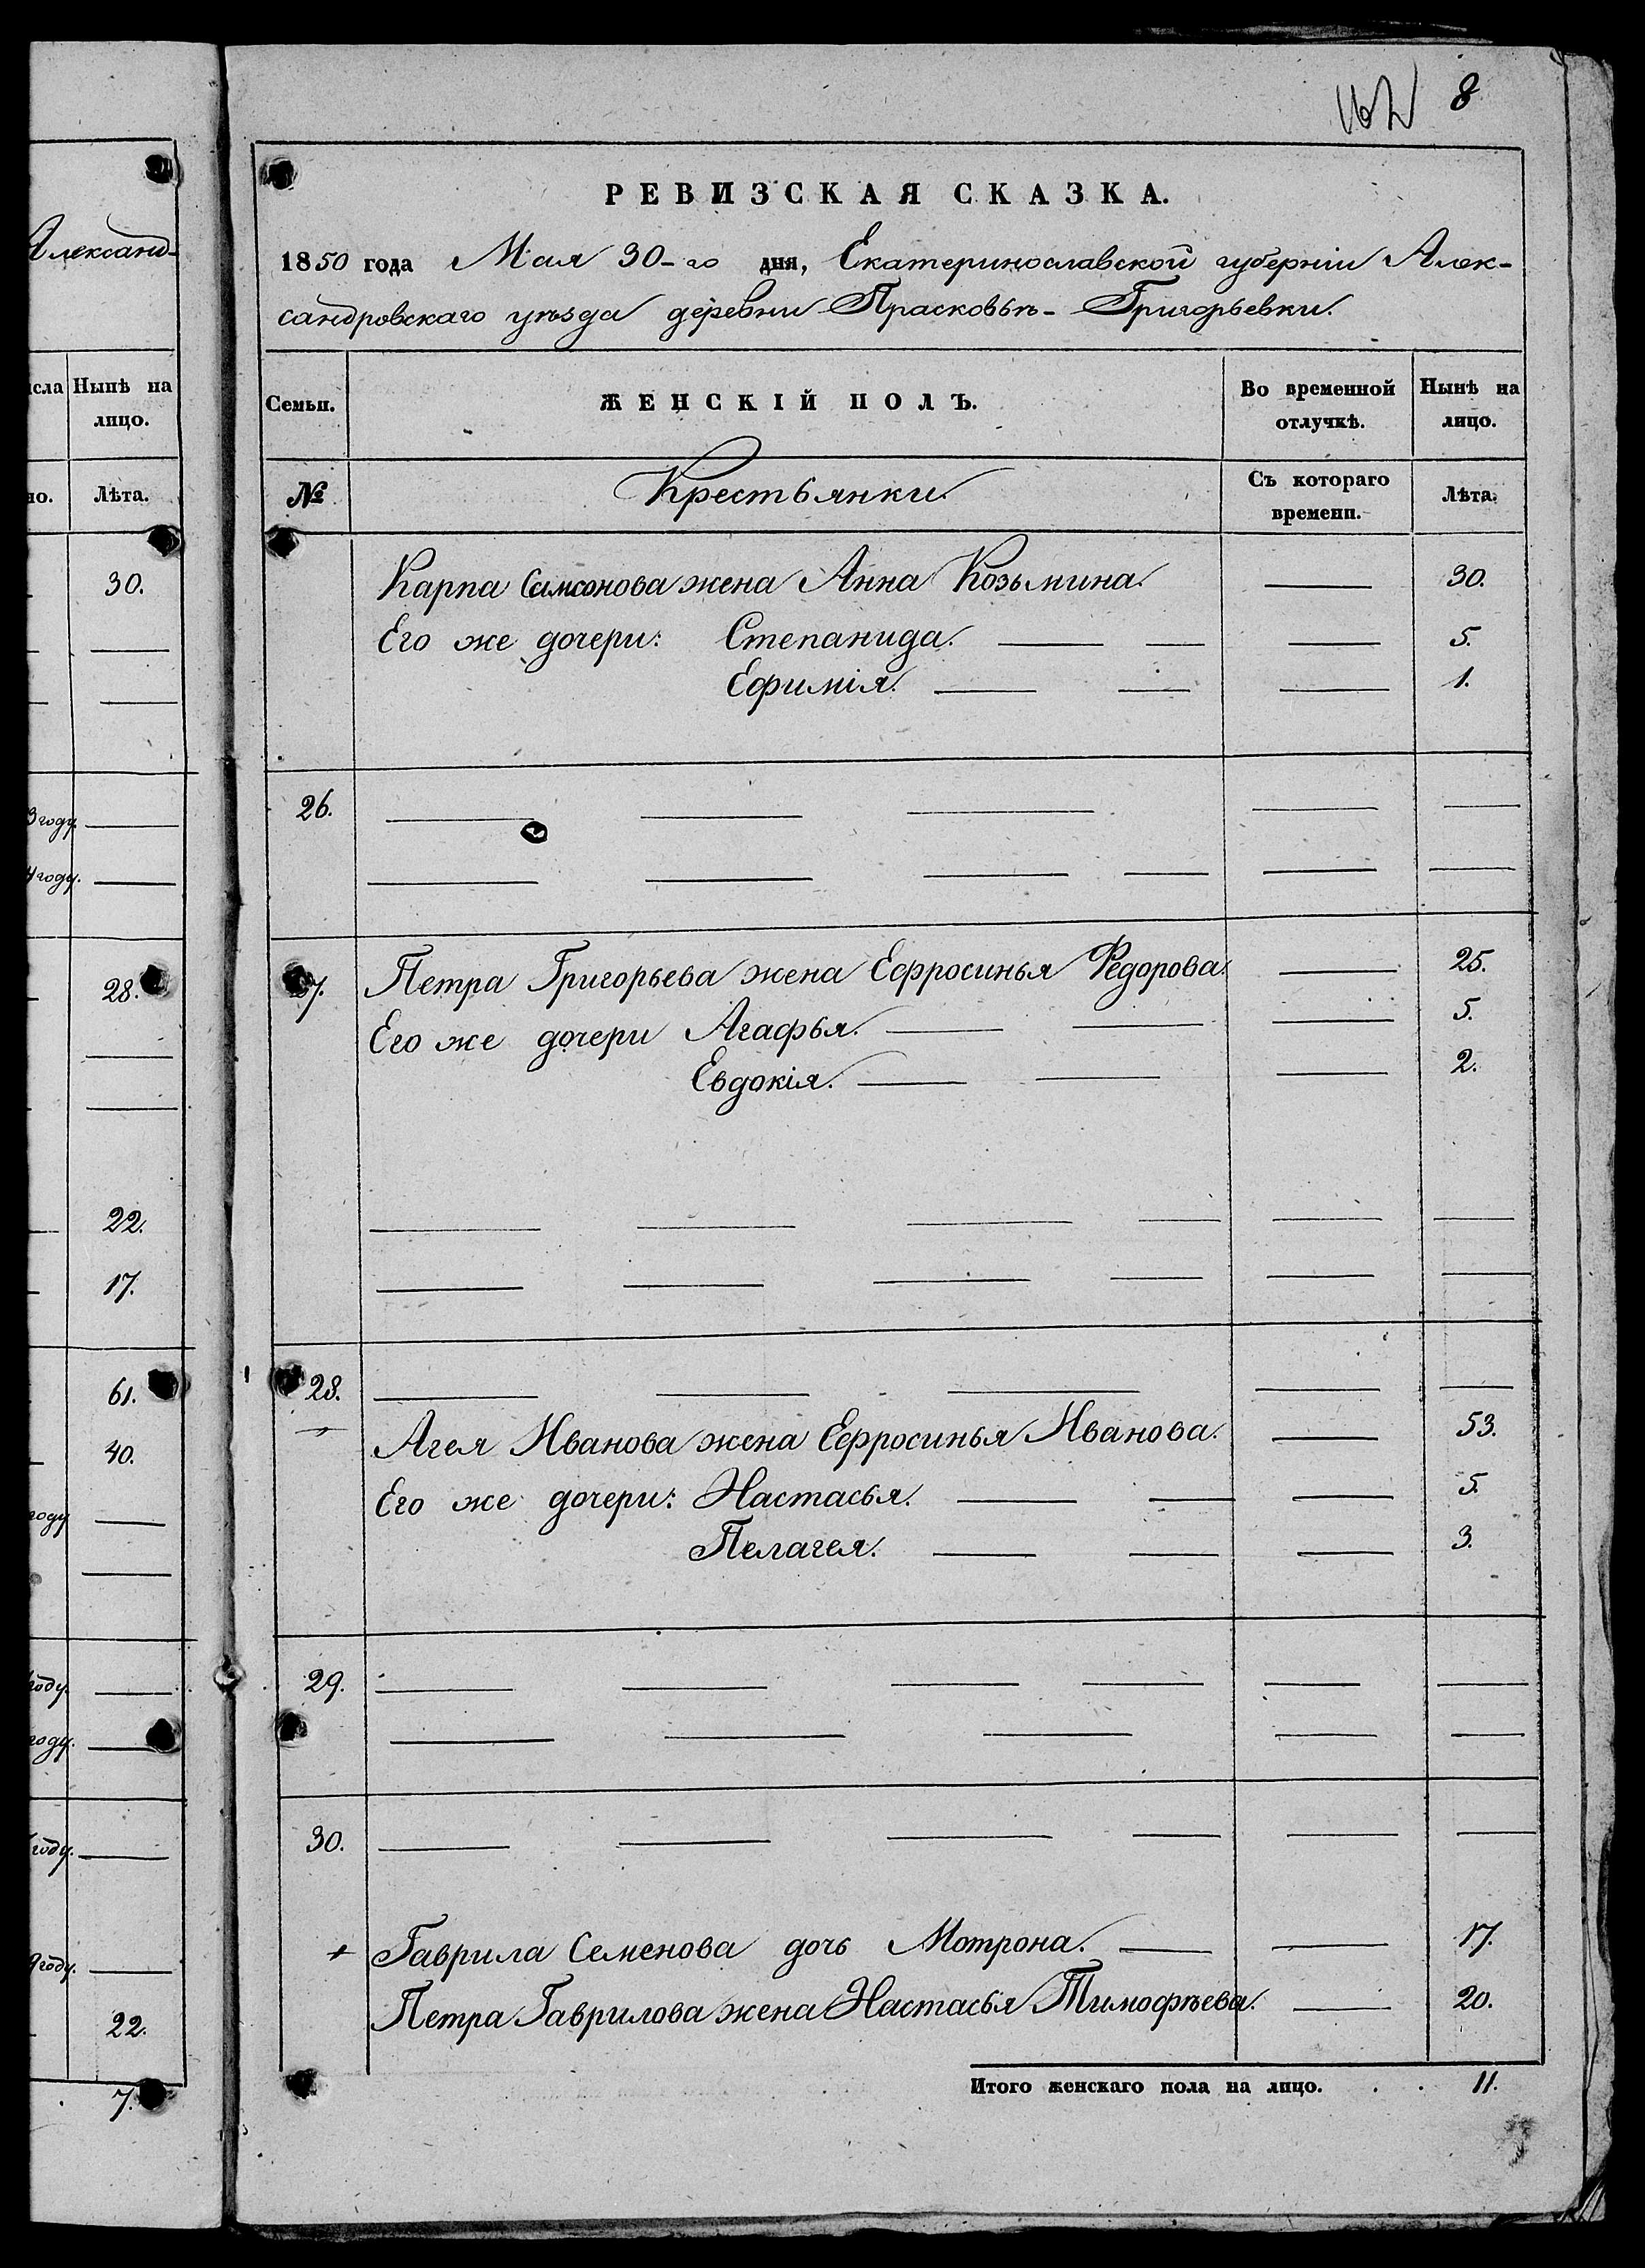 162 8
РЕВИЗСКАЯ СКАЗКА.
1850 года Мая 30-го дня, Екатеринославской губерніи Алек-
сандровскаго уѣзда деревни Прасковьѣ-Григорьевки.
Семьи. ЖЕНСКІЙ ПОЛЪ. Во временной отлучкѣ. Нынѣ на лицо.
№ Крестьянки. Съ котораго времени. Лѣта.
Карпа Самсонова жена Анна Козьмина. 30.
Его же дочери: Степанида. 5.
Ефимія. 1.
26.
27. Петра Григорьева жена Ефросинья Федорова. 25.
Его же дочери Агафья. 5.
Евдокія. 2.
28.
Агея Иванова жена Ефросинья Иванова. 53.
Его же дочери: Настасья. 5.
Пелагея. 3.
29.
30.
Гаврила Семенова дочь Мотрона. 17.
Петра Гаврилова жена Настасья Тимофѣева. 20.
Итого женскаго пола на лицо. . . 11.
Александ-
Нынѣ на
лицо.
Лѣта.
30.
году.
году.
28.
22.
17.
61.
40.
году
году.
году.
году.
году.
22.
7.